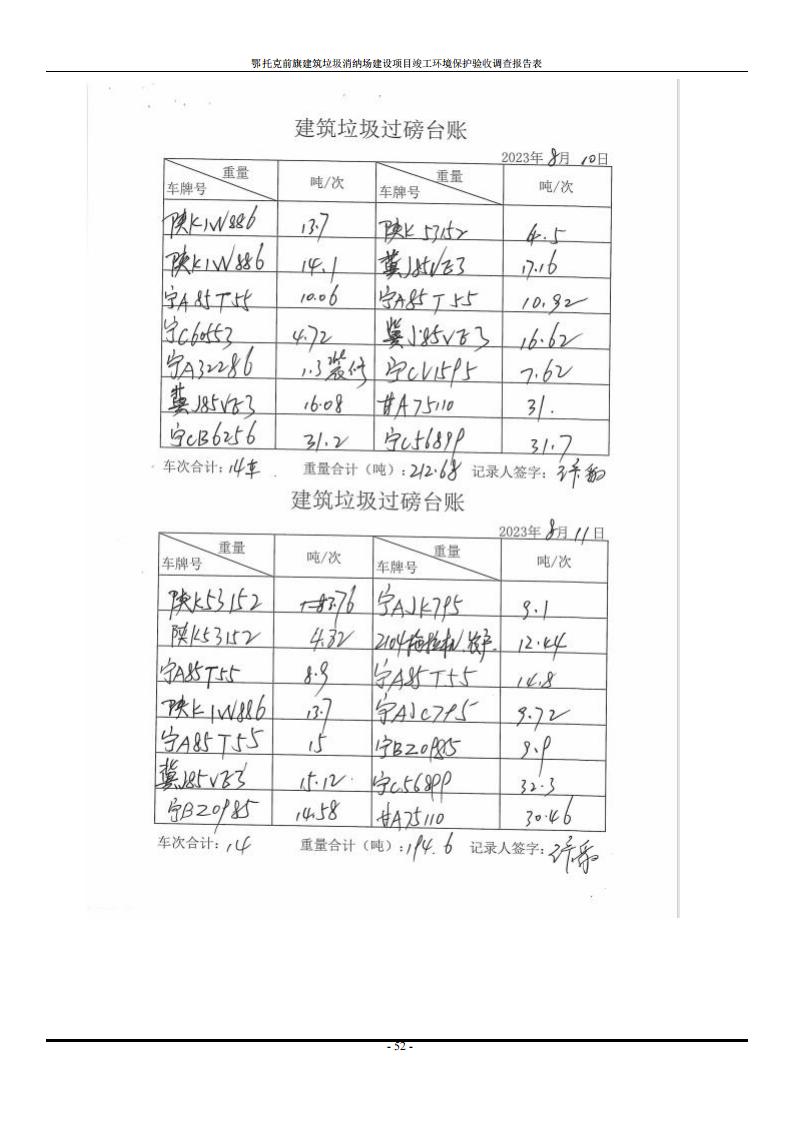 鄂托克前旗建筑垃圾消纳场建设项目竣工环境保护验收调查报告表
建筑垃圾过磅台账
2023年8月10日
车牌号 重量 吨/次 车牌号 重量 吨/次
陕K1W886 13.7 陕K53152 4.5
陕K1W886 14.1 冀J85VE3 17.16
宁A85T55 10.06 宁A85T55 10.92
宁C60553 4.72 冀J85VE3 16.62
宁A32286 1.3装修 宁CV1595 7.62
冀J85VE3 16.08 甘A75110 31.
宁CB6256 31.2 宁C56899 31.7
车次合计:14车 重量合计(吨):212.68 记录人签字:
建筑垃圾过磅台账
2023年8月11日
车牌号 重量 吨/次 车牌号 重量 吨/次
陕K53152 宁AJK795 9.1
陕K53152 4.32 2104拖拉机 12.44
宁A85T55 8.9 宁A85T55 14.8
陕K1W886 13.7 宁AJC795 9.72
宁A85T55 15 宁BZ0985 9.9
冀J85VE3 15.12 宁C56899 32.3
宁BZ0985 14.58 甘A75110 30.46
车次合计:14 重量合计(吨):194.6 记录人签字:
- 52 -